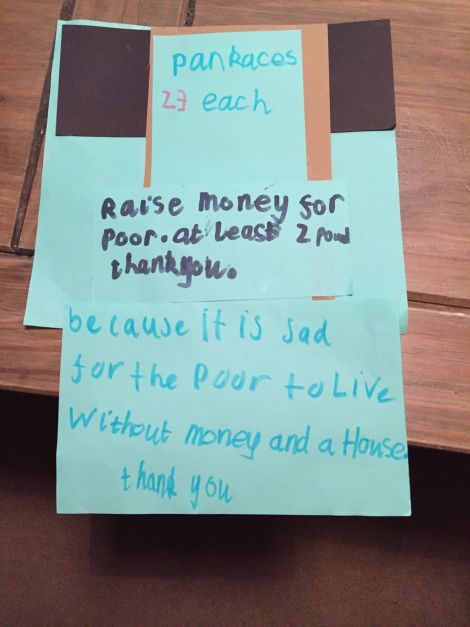 pankaces
27 each
Raise money for
Poor. at Least 2 Pound
thankyou.
because it is sad
for the Poor to Live
Without money and a House.
thank you